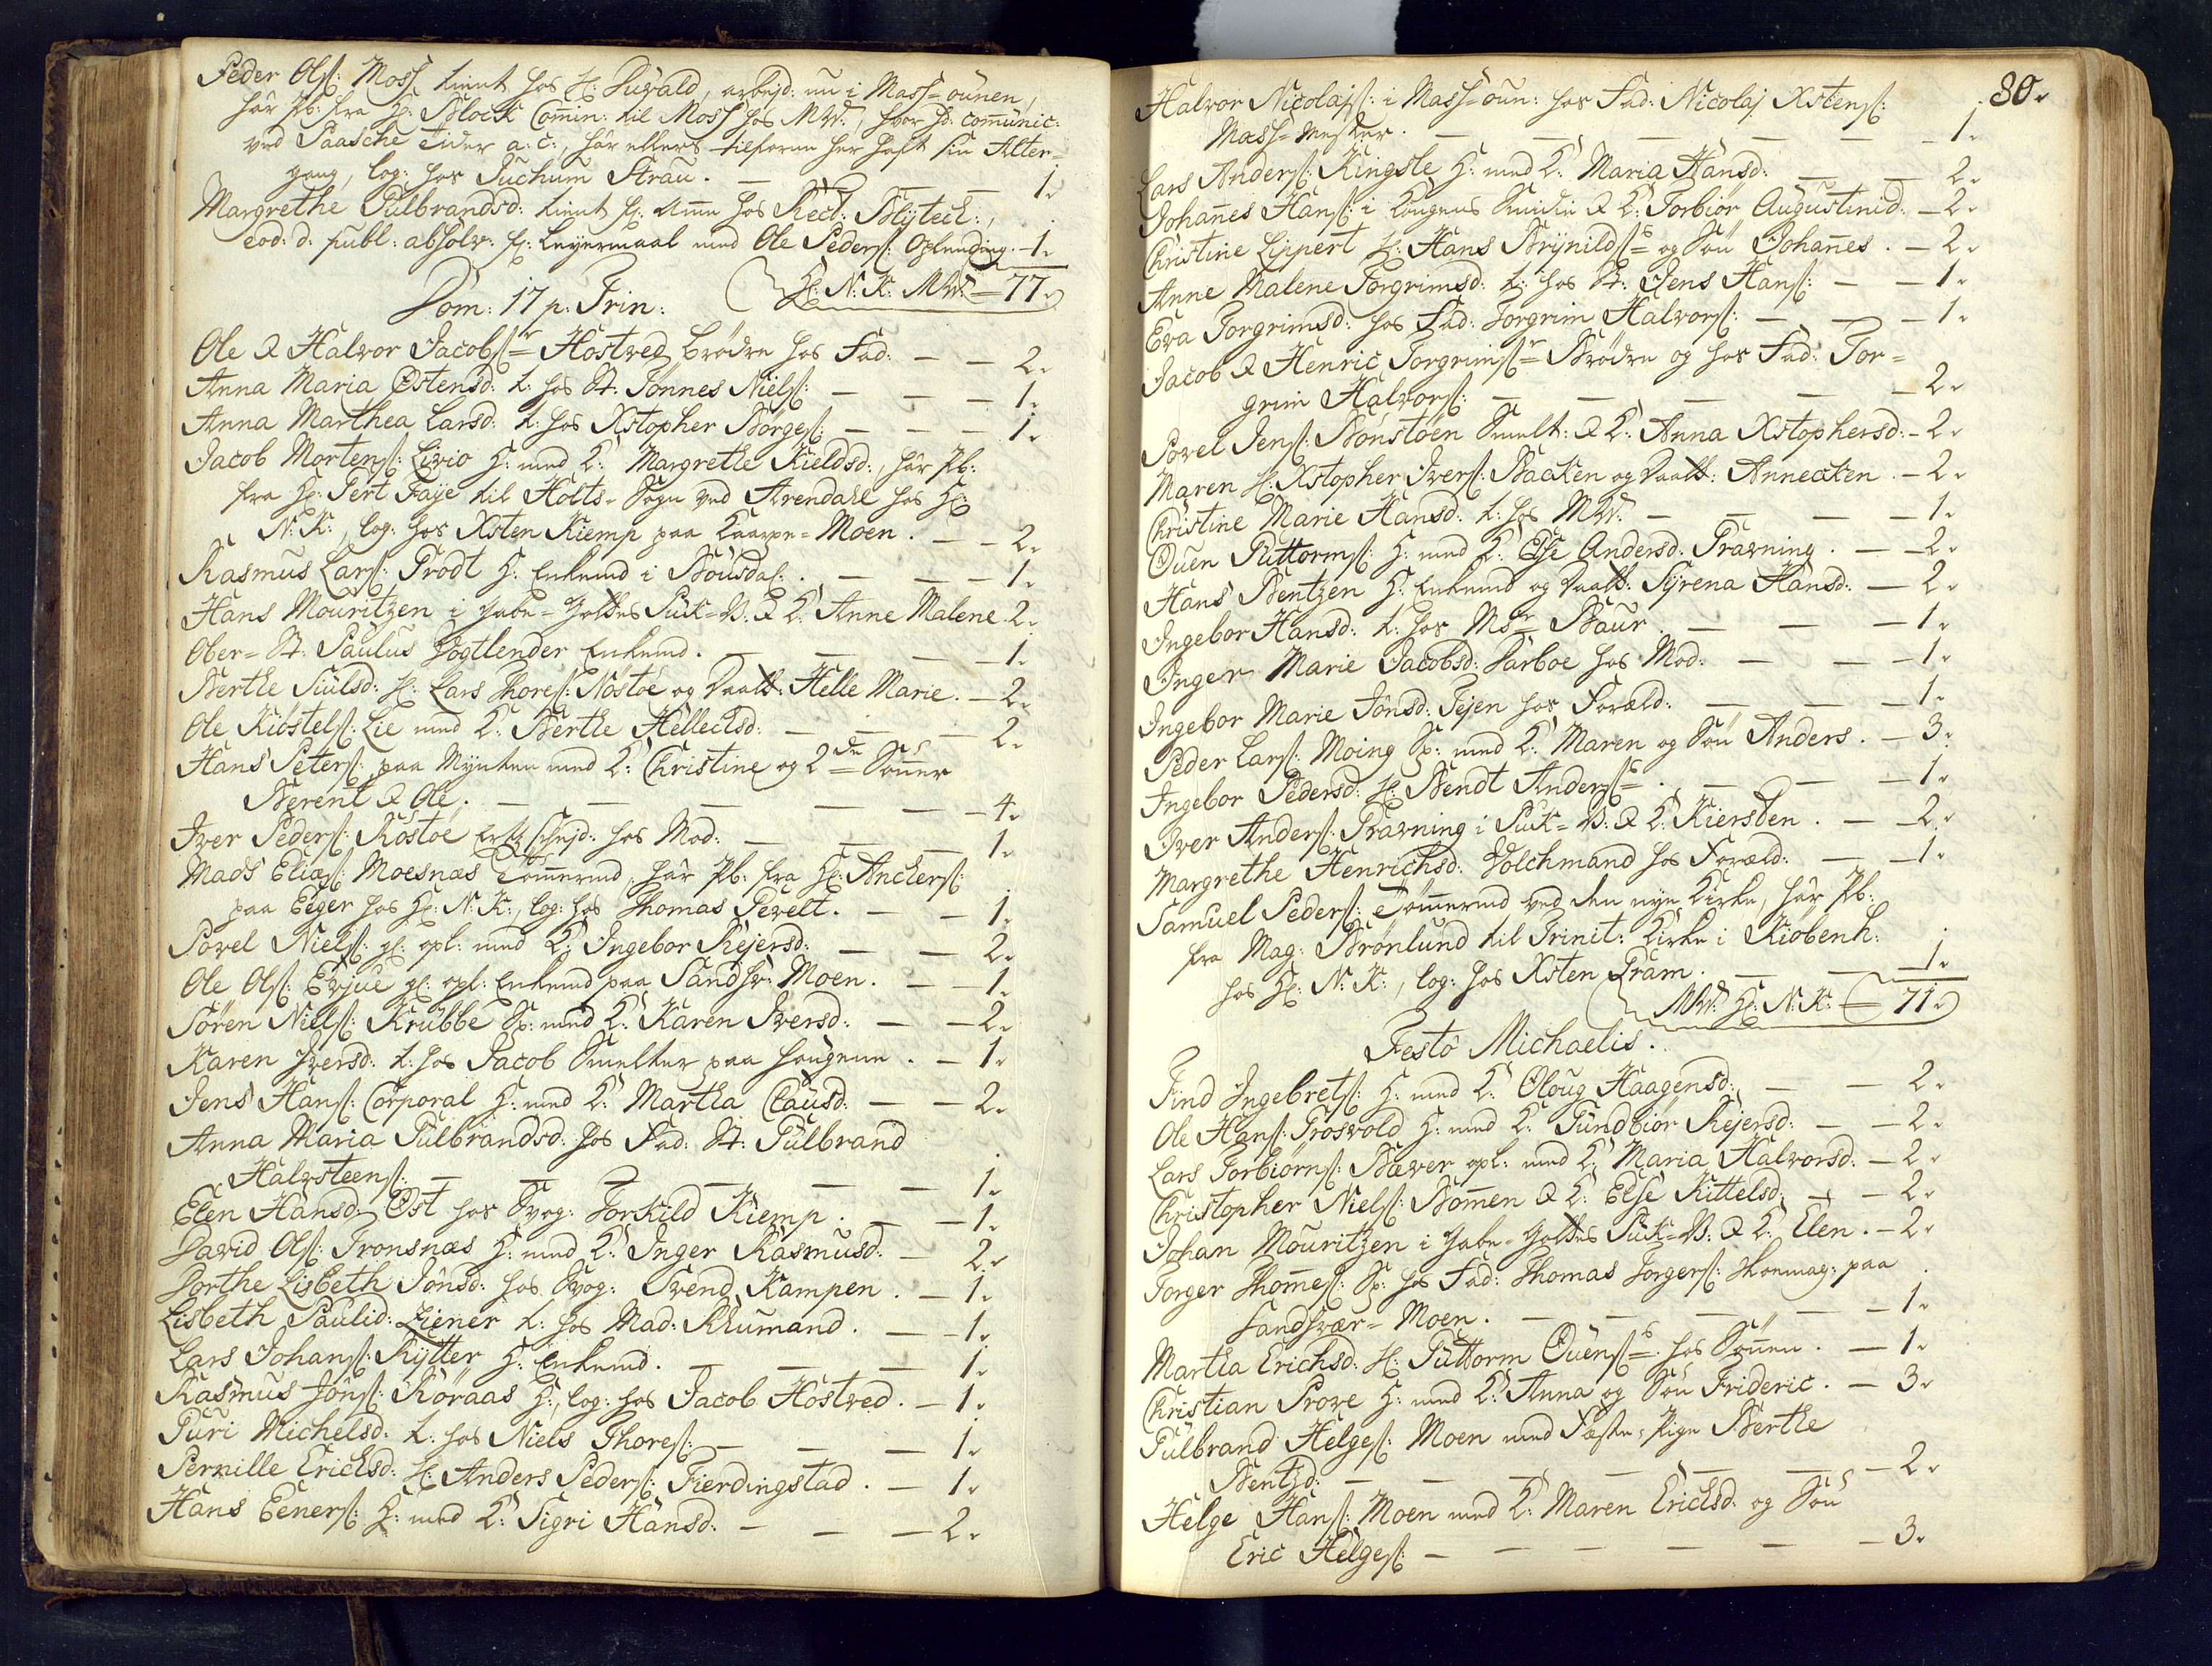 Peder Ols: Moss tient hos H: Duvald, arbejd: nu i Mass-ounen,
har Pb: fra H: Block Comin: til Moss hos MW:, hvor hd: comunic:
ved Paasche Tider a: c:, har ellers tilforne her haft sin Alter-
gang, log: hos Juchum Strau. — — — 1.
Margrethe Gulbrandsd: tient s: Amme hos Rect: Blytect:,
eod: d: publ: absolv: f: Leyermaal med Ole Peders: Oplending. — 1.
H: N: K: MW: — 77.
Dom: 17 p: Trin:
Ole & Halvor Jacobsr Hostved brødre hos Fad: — — 2.
Anna Maria Østensd: t: hos St: Tønnes Niels: — — — 1.
Anna Marthea Larsd: t: hos Xstopher Børges: — — — 1.
Jacob Mortens: Livio H: med K: Margrethe Kieldsd:, har Pb:
fra H: Gert Faye til Holts-Sogn ved Arendahl hos H:
N: K:, log: hos Xsten Kiemp paa Kaarpe-Moen. — — 2.
Rasmus Lars: Trodt H: Enkemd i Bøusdal. — — — 1.
Hans Mouritzen i Habe-Gottes Puk-W: & K: Anne Malene. 2.
Ober-St: Paulus Vogtlender Enkemd. — — — 1.
Berthe Siulsd: H: Lars Thores: Nøstøe og Daatt: Helle Marie. — 2.
Ole Kiøstels: Lie med K: Berthe Hellecksd: — — 2.
Hans Peters: paa Mynten med K: Christine og 2de Sønner
Berent & Ole. — — — — — 4.
Iver Peders: Røstøe Ertzschejd: hos Mod: — — — 1.
Mads Elias: Moesnæs Tømmermd, har Pb: fra H: Anckers:
paa Eeger hos H: N: K:, log: hos Thomas Pevelt. — — 1.
Povel Niels: gl: opl: med K: Ingebor Rejersd: — — 2.
Ole Ols: Evjue gl: opl: Enkemd paa Sandsv: Moen. — — 1.
Søren Niels: Krubbe Sp: med K: Karen Iversd: — — 2.
Karen Iversd: t: hos Jacob Smelter paa Haugene. — 1.
Jens Hans: Corporal H: med K: Martha Clausd: — — 2.
Anna Maria Gulbrandsd: hos Fad: St: Gulbrand
Halvsteens: — — — — — 1.
Elen Hansd: Øst hos Svog: Torkild Kiemp. — — 1.
David Ols: Tronsnæs H: med K: Inger Rasmusd: — 2.
Dorthe Lisbeth Jonsd: hos Svog: Svend Kampen. — 1.
Lisbeth Paulid: Ziener t: hos Mad: Rhumand. — — 1.
Lars Johans: Rytter H: Enkemd. — — — 1.
Rasmus Jons: Røraas H:, log: hos Jacob Hostved. — 1.
Guri Michelsd: t: hos Niels Thores: — — — 1.
Pernille Ericksd: H: Anders Peders: Fierdingstad. — 1.
Hans Eeners: H: med K: Sigri Hansd: — — — 2.
80.
Halvor Nicolajs: i Mass-oun: hos Fad: Nicolaj Xstens:
Mass-Mester. — — — — — 1.
Lars Anders: Ringste H: med K: Maria Hansd: — — 2.
Johannes Hans: i Kongens Smidie & K: Torbiør Augustinid: — 2.
Christine Lippert H: Hans Brynilds: og Søn Johannes. — 2.
Anne Malene Torgrimsd: t: hos St: Jens Hans: — — 1.
Eva Torgrimsd: hos Fad: Torgrim Halvors: — — — 1.
Jacob & Henric Torgrimsr Brødre og hos Fad: Tor-
grim Halvors: — — — — — 2.
Povel Jens: Bønstøen Smelt: & K: Anna Xstophersd: — 2.
Maren H: Xstopher Ivers: Backen og Daatt: Anneaken. — 2.
Christine Marie Hansd: t: hos MW: — — — — 1.
Ouen Guttorms: H: med K: Else Andersd: Pravning. — — 2.
Hans Bentzen H: Enkemd og Daatt: Syrena Hansd: — 2.
Ingebor Hansd: t: hos Msr Baur. — — — 1.
Inger Marie Jacobsd: Sarboe hos Mod: — — — 1.
Ingebor Marie Jonsd: Tejen hos Foræld: — — — 1.
Peder Lars: Moing Sp: med K: Maren og Søn Anders. — 3.
Ingebor Pedersd: H: Bendt Anders: — — — 1.
Iver Anders: Pravning i Puk-W: & K: Kiersten. — — 2.
Margrethe Henrichsd: Volchmand hos Foræld: — — 1.
Samuel Peders: Tømmermd ved den nye Kirke, har Pb:
fra Mag: Brønlund til Trinit: Kirke i Kiøbenh:
hos H: N: K:, log: hos Xsten Pram. — — — 1.
MW: H: N: K: — 71.
Festo Michaelis.
Find Ingebrets: H: med K: Oloug Haagensd: — — 2.
Ole Hans: Trosvold H: med K: Gundbiør Rejersd: — — 2.
Lars Torbiørns: Bæver opl: med K: Maria Halvorsd: — 2.
Christopher Niels: Bommen & K: Else Kittelsd: — — 2.
Johan Mouritzen i Habe-Gottes Puk-W: & K: Elen. — 2.
Torger Thomes: Sp: hos Fad: Thomas Torgers: Skomag: paa
Sandsvær-Moen. — — — — — 1.
Martha Erichsd: H: Guttorm Ouens: hos Sønnen. — 1.
Christian Prove H: med K: Anna og Søn Frideric. — 3.
Gulbrand Helges: Moen med Fæste-Pige Berthe
Bentzd: — — — — — 2.
Helge Hans: Moen med K: Maren Ericksd: og Søn
Eric Helges: — — — — — 3.